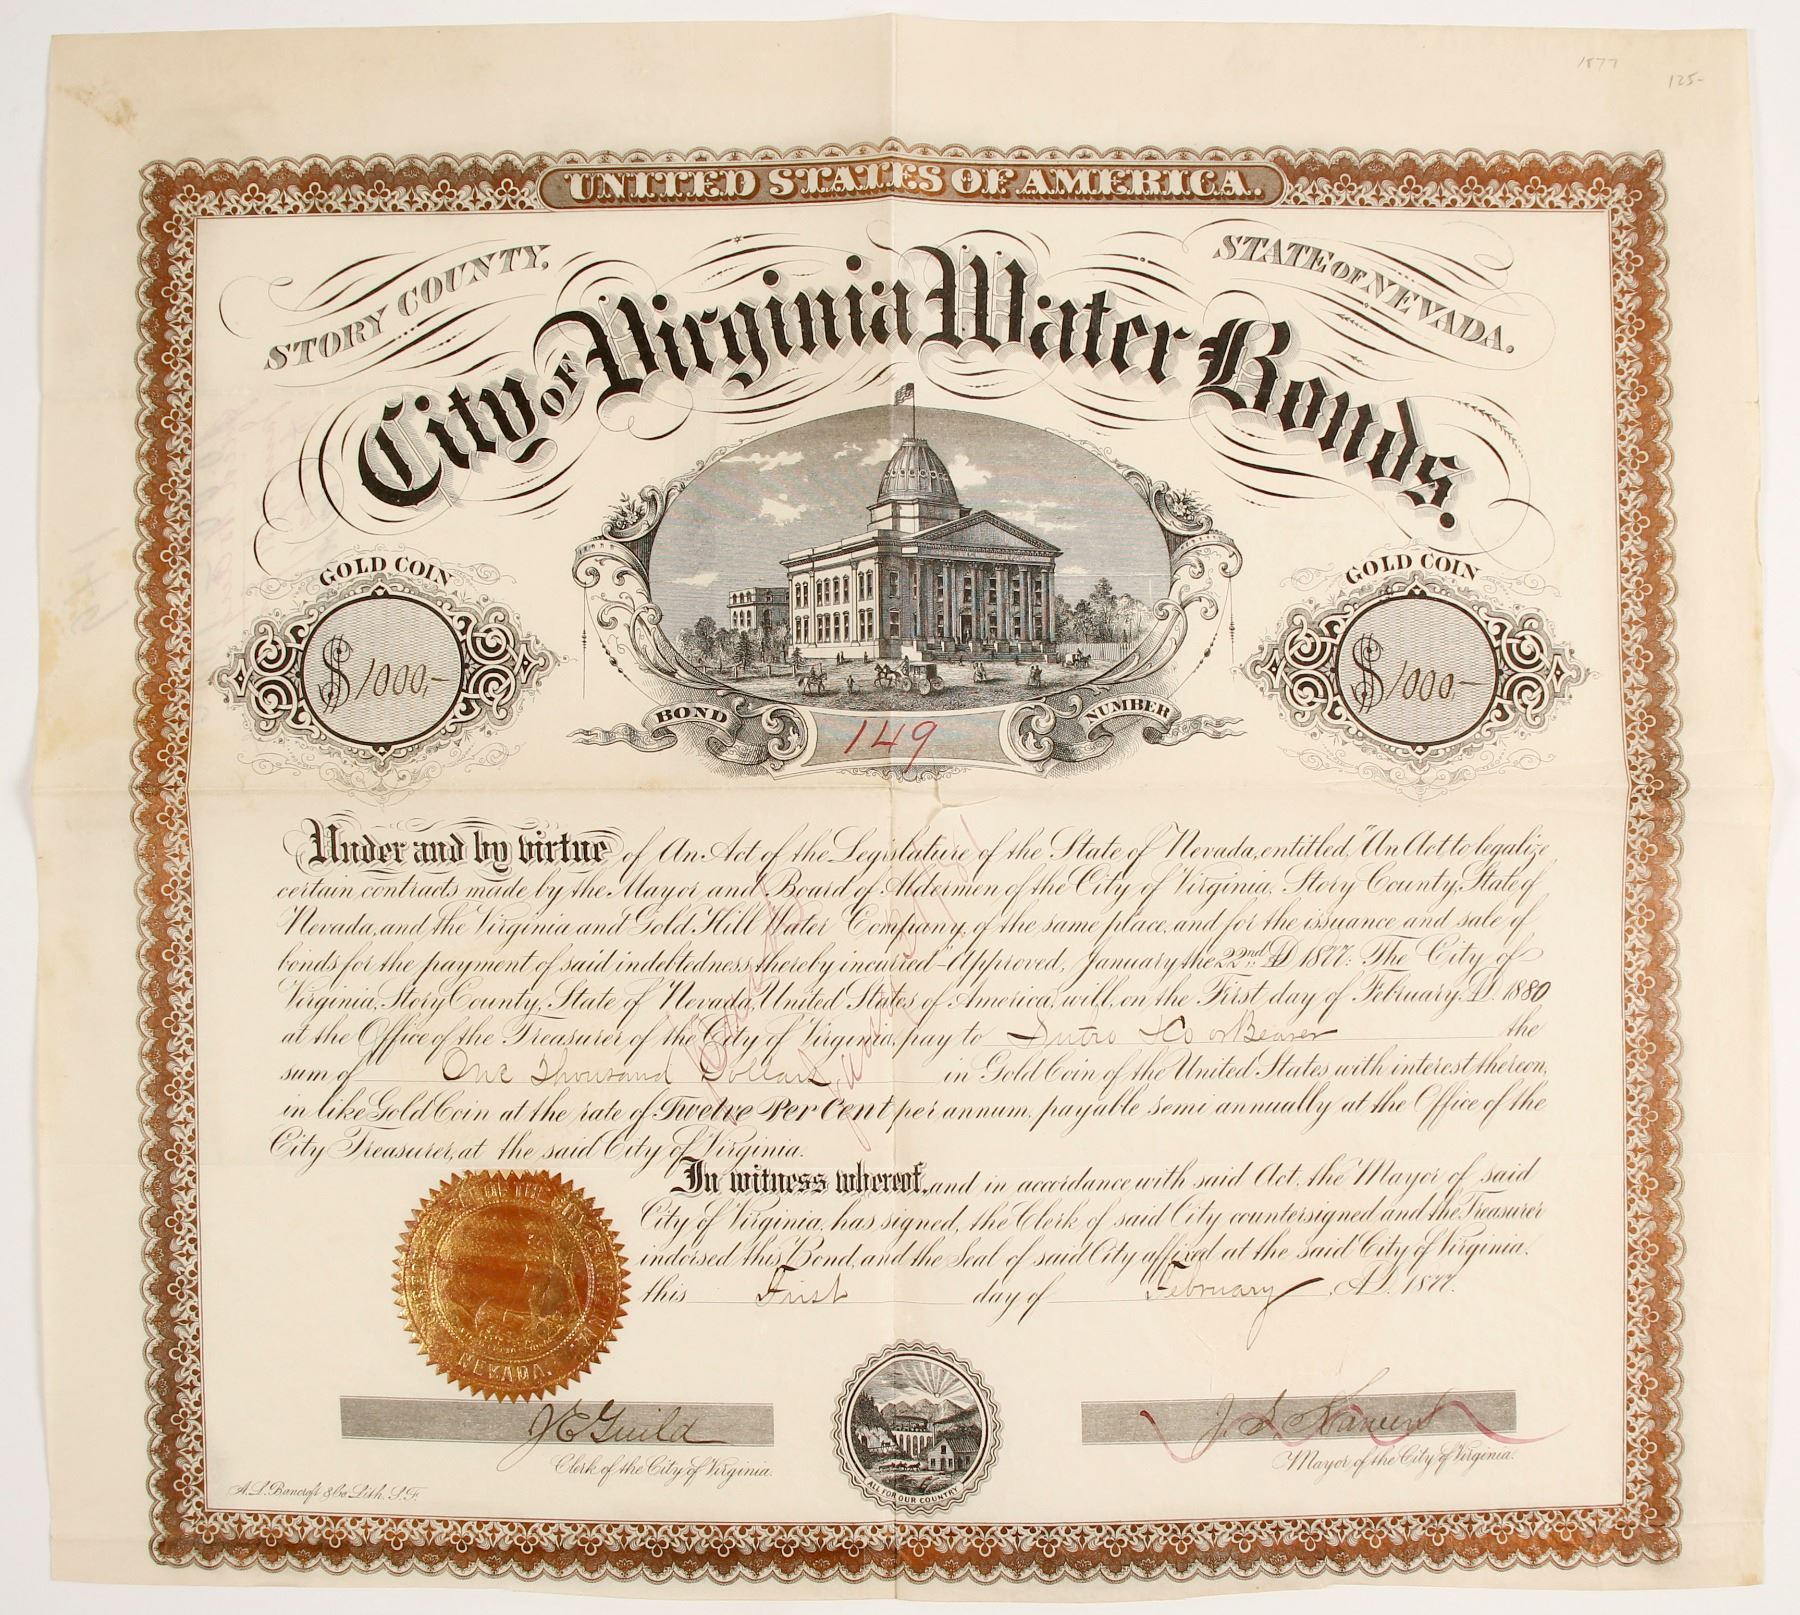 1877
125-
UNITED STATES OF AMERICA.
STORY COUNTY,
STATE OF NEVADA.
City OF Virginia Water Bonds.
GOLD COIN
$1000,-
GOLD COIN
$1000-
BOND
149
NUMBER
Under and by virtue of An Act of the Legislature of the State of Nevada, entitled, "An Act to legalize
certain contracts made by the Mayor and Board of Aldermen of the City of Virginia, Story County, State of
Nevada, and the Virginia and Gold Hill Water Company, of the same place, and for the issuance and sale of
bonds for the payment of said indebtedness thereby incurred" Approved, January the 22nd A.D. 1877: The City of
Virginia, Story County, State of Nevada, United States of America, will, on the First day of February A.D. 1880
at the Office of the Treasurer of the City of Virginia, pay to Sutro & Co or Bearer the
sum of One Thousand Dollars, in Gold Coin of the United States with interest thereon,
in like Gold Coin at the rate of Twelve Per Cent per annum, payable semi annually at the Office of the
City Treasurer, at the said City of Virginia.
In witness whereof, and in accordance with said Act, the Mayor of said
City of Virginia, has signed, the Clerk of said City countersigned and the Treasurer
indorsed this Bond, and the Seal of said City affixed at the said City of Virginia.
this First day of February, A.D. 1877.
NEVADA.
J E Guild
Clerk of the City of Virginia.
ALL FOR OUR COUNTRY
Mayor, of the City of Virginia.
A. L. Bancroft & Co Lith. S. F.